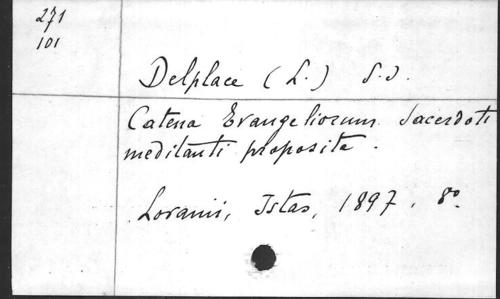 271
101
Delplace (L.) S.J.
Catena Evangeliorum Sacerdoti
meditanti proposita.
Lovanii, Istas, 1897, 8º.